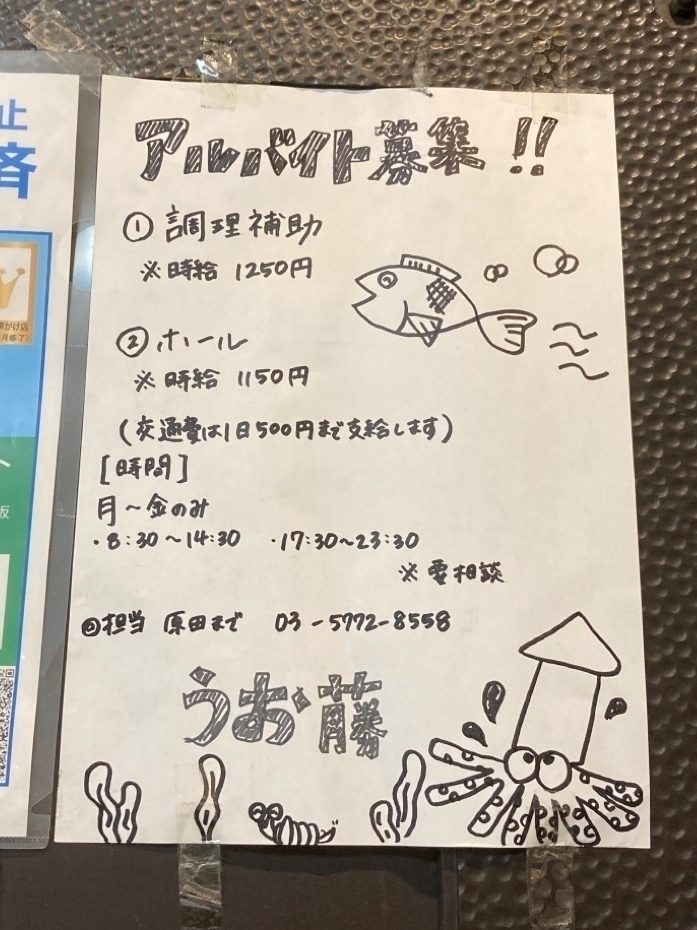 アルバイト募集!!
① 調理補助
※時給 1250円
② ホール
※時給 1150円
(交通費は1日500円まで支給します)
[時間]
月～金のみ
・8:30～14:30 ・17:30～23:30
※要相談
◎担当 原田まで 03-5772-8558
うお藤
止
済